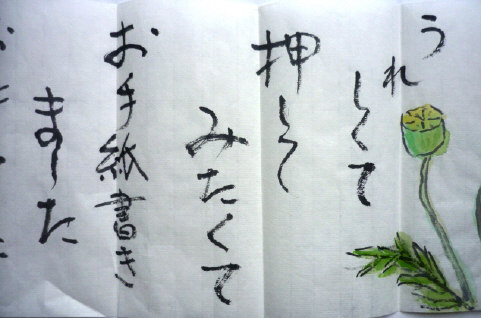 うれ
しくて
押して
みたくて
お手紙書き
ました